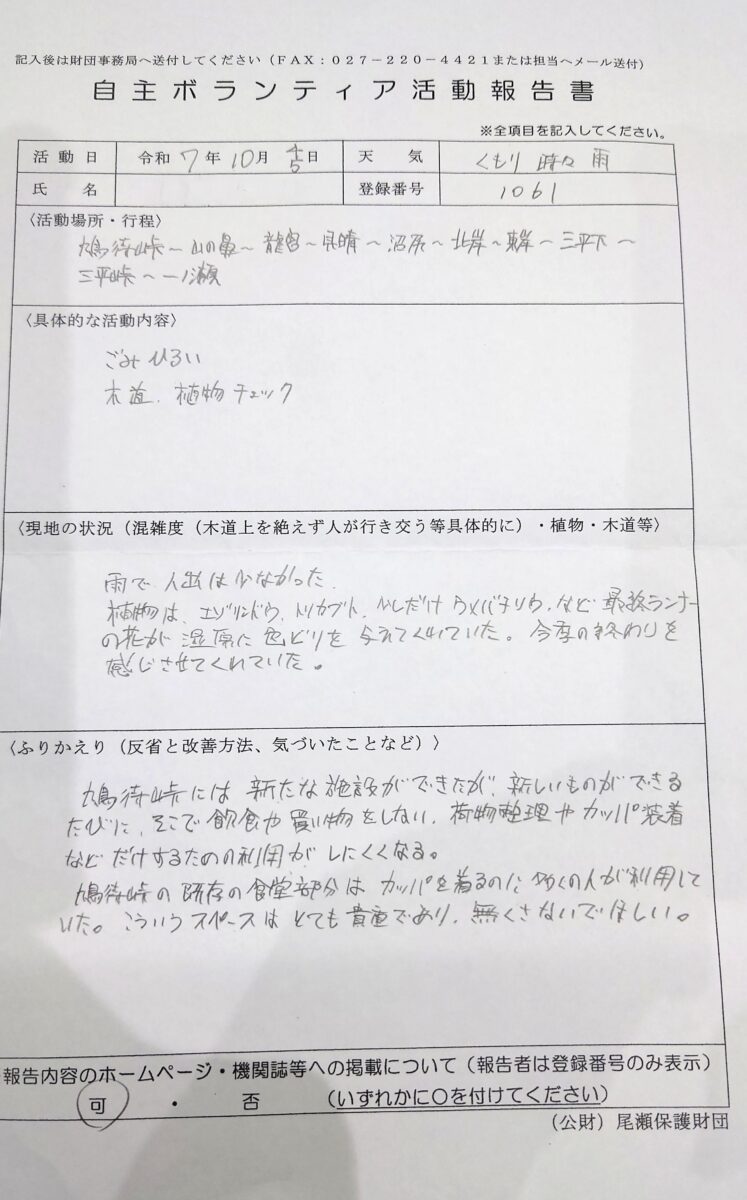 記入後は財団事務局へ送付してください（ＦＡＸ：０２７－２２０－４４２１または担当へメール送付）
自主ボランティア活動報告書
※全項目を記入してください。
活動日 令和 7 年 10 月 日 天気 くもり 時々 雨
氏名 登録番号 1061
〈活動場所・行程〉
鳩待峠～山の鼻～龍宮～見晴～沼尻～北岸～東岸～三平下～
三平峠～一ノ瀬
〈具体的な活動内容〉
ごみひろい
木道、植物チェック
〈現地の状況（混雑度（木道上を絶えず人が行き交う等具体的に）・植物・木道等〉
雨で、人出は少なかった。
植物は、エゾリンドウ、トリカブト、少しだけウメバチソウ、など最終ランナー
の花が湿原に色どりを与えてくれていた。今季の終わりを
感じさせてくれていた。
〈ふりかえり（反省と改善方法、気づいたことなど）〉
鳩待峠には新たな施設ができたが、新しいものができる
たびに、そこで飲食や買い物をしない、荷物整理やカッパ装着
などだけするための利用がしにくくなる。
鳩待峠の既存の食堂部分はカッパを着るのに多くの人が利用して
いた。こういうスペースはとても貴重であり、無くさないでほしい。
報告内容のホームページ・機関誌等への掲載について（報告者は登録番号のみ表示）
可 ・ 否 （いずれかに○を付けてください）
（公財）尾瀬保護財団